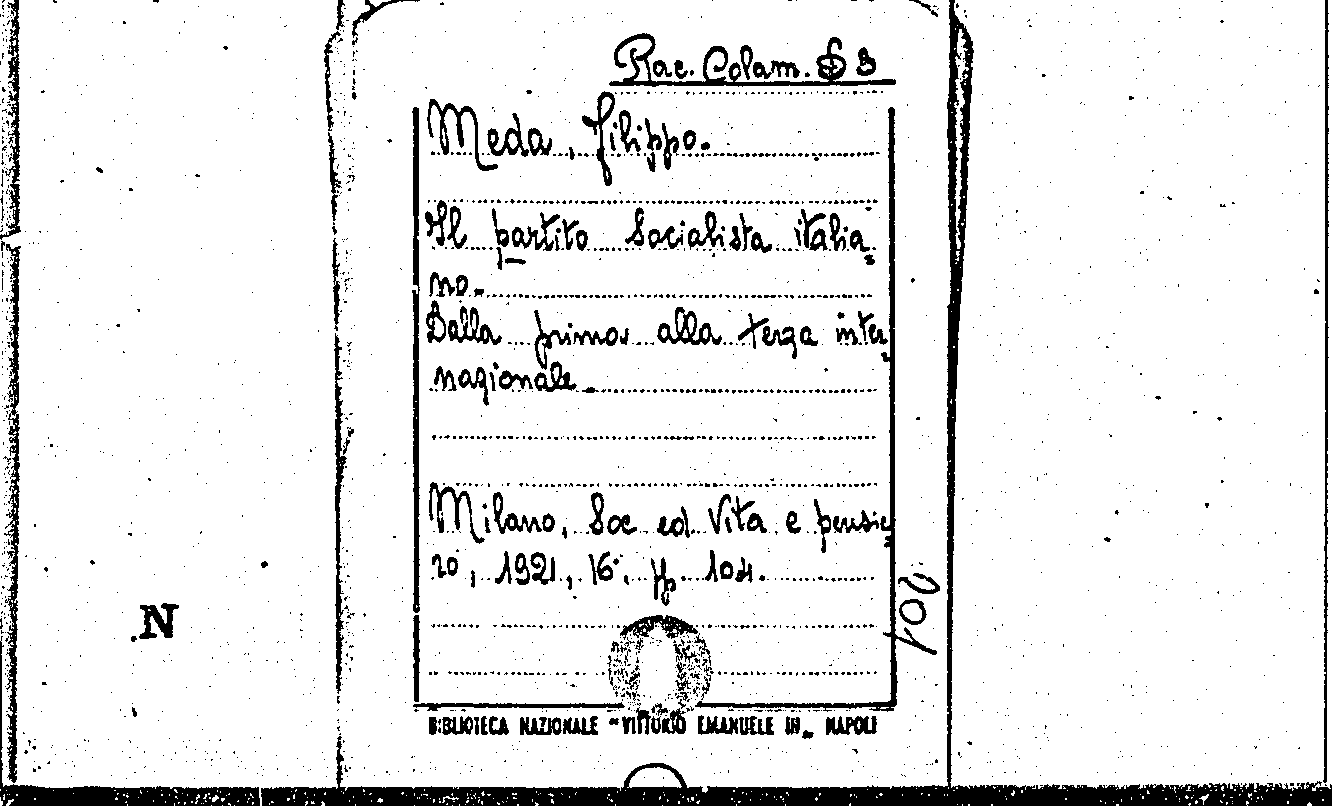 Rac. Colam. B 3
Meda, Filippo.
Il partito Socialista italia=
no.
Dalla prima alla terza inter=
nazionale.
Milano, Soc ed. Vita e pensie=
ro, 1921, 16°, pp. 104.
N
BIBLIOTECA NAZIONALE "VITTORIO EMANUELE III„ NAPOLI